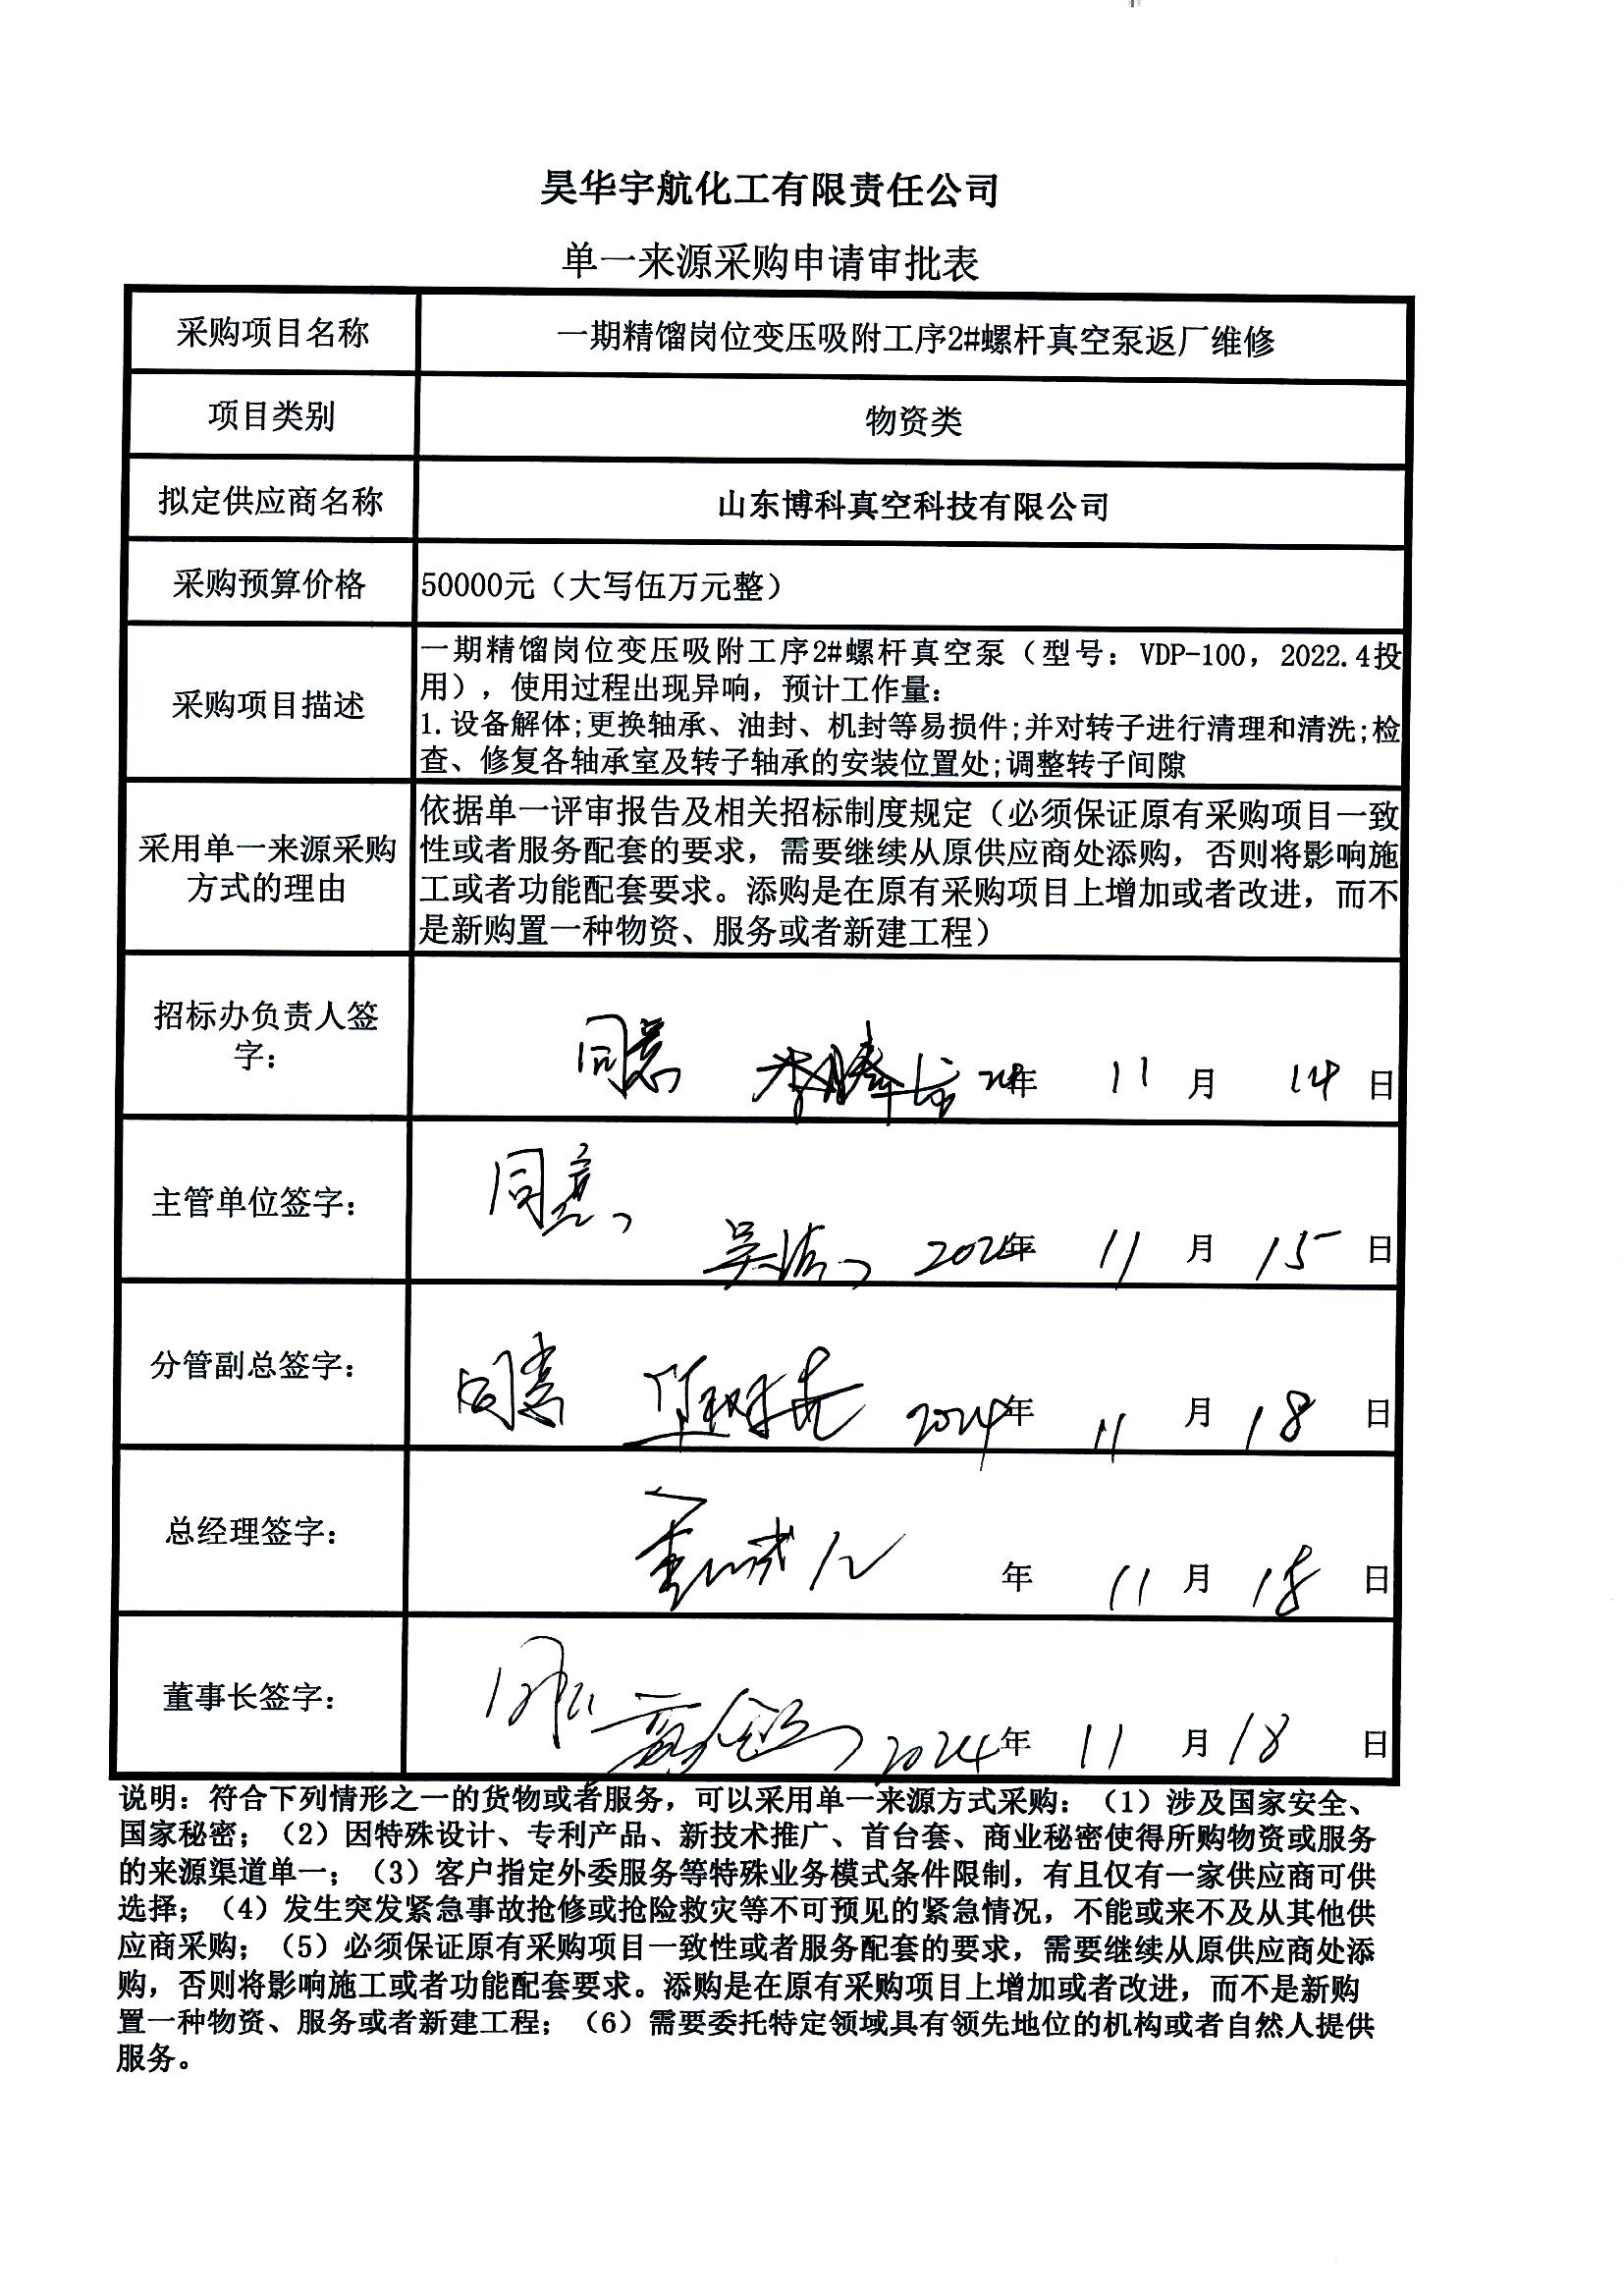 昊华宇航化工有限责任公司
单一来源采购申请审批表
采购项目名称
一期精馏岗位变压吸附工序2#螺杆真空泵返厂维修
项目类别
物资类
拟定供应商名称
山东博科真空科技有限公司
采购预算价格
50000元（大写伍万元整）
采购项目描述
一期精馏岗位变压吸附工序2#螺杆真空泵（型号：VDP-100，2022.4投
用），使用过程出现异响，预计工作量：
1.设备解体;更换轴承、油封、机封等易损件;并对转子进行清理和清洗;检
查、修复各轴承室及转子轴承的安装位置处;调整转子间隙
采用单一来源采购
方式的理由
依据单一评审报告及相关招标制度规定（必须保证原有采购项目一致
性或者服务配套的要求，需要继续从原供应商处添购，否则将影响施
工或者功能配套要求。添购是在原有采购项目上增加或者改进，而不
是新购置一种物资、服务或者新建工程）
招标办负责人签
字：
同意 24年 11 月 14 日
主管单位签字：
同意
2024年 11 月 15 日
分管副总签字：
同意 2024年 11 月 18 日
总经理签字：
年 11 月 18 日
董事长签字：
2024年 11 月 18 日
说明：符合下列情形之一的货物或者服务，可以采用单一来源方式采购：（1）涉及国家安全、
国家秘密；（2）因特殊设计、专利产品、新技术推广、首台套、商业秘密使得所购物资或服务
的来源渠道单一；（3）客户指定外委服务等特殊业务模式条件限制，有且仅有一家供应商可供
选择；（4）发生突发紧急事故抢修或抢险救灾等不可预见的紧急情况，不能或来不及从其他供
应商采购；（5）必须保证原有采购项目一致性或者服务配套的要求，需要继续从原供应商处添
购，否则将影响施工或者功能配套要求。添购是在原有采购项目上增加或者改进，而不是新购
置一种物资、服务或者新建工程；（6）需要委托特定领域具有领先地位的机构或者自然人提供
服务。